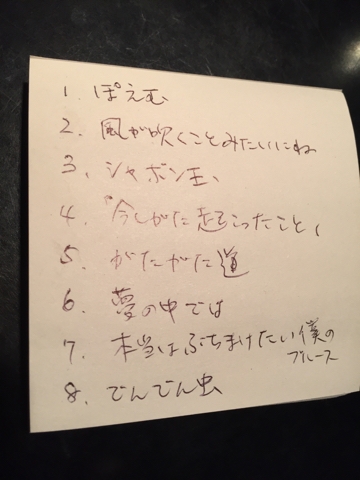 1. ぽえむ
2. 風が吹くことみたいにね
3. シャボン玉、
4. 今しがた起こったこと、
5. がたがた道
6. 夢の中では
7. 本当はぶちまけたい僕の
ブルース
8. でんでん虫